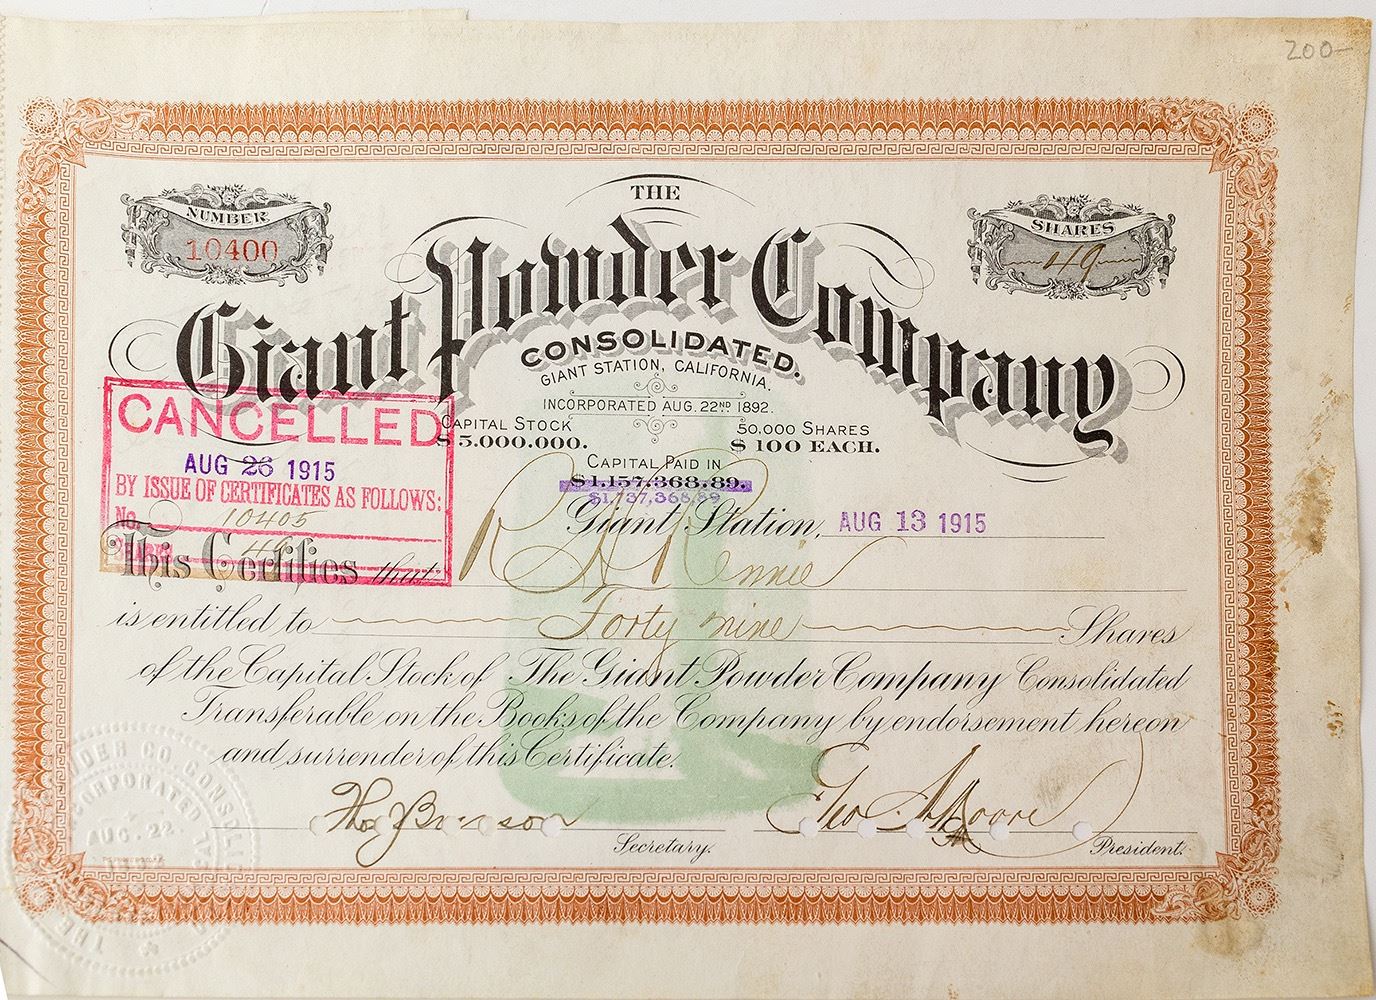 200-
THE
NUMBER
10400
SHARES
49
Giant Powder Company
CONSOLIDATED.
GIANT STATION, CALIFORNIA,
INCORPORATED AUG. 22ND 1892.
CAPITAL STOCK
$5.000.000.
50,000 SHARES
$100 EACH.
CAPITAL PAID IN
$1.157.368.89.
$1,737,368.89
CANCELLED
AUG 26 1915
BY ISSUE OF CERTIFICATES AS FOLLOWS:
No. 10405
SHARES 49
Giant Station, AUG 13 1915
This Certifies that R H Rennie
is entitled to Forty nine Shares
of the Capital Stock of The Giant Powder Company Consolidated
Transferable on the Books of the Company by endorsement hereon
and surrender of this Certificate.
Secretary.
Geo A Moore
President.
THE POWDER CO. CONSOLIDATED
INCORPORATED
AUG. 22